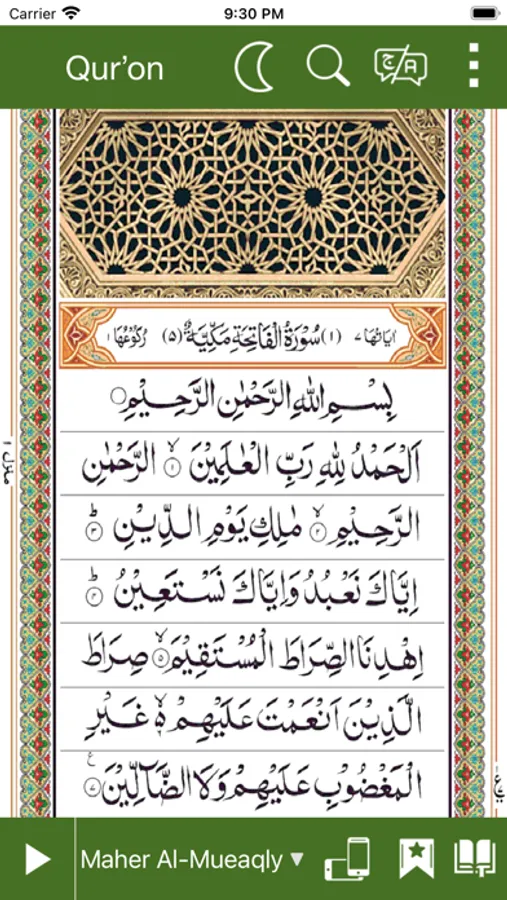 Carrier 9:30 PM
Qur’on
اٰيَاتُهَا ٧ (١) سُوْرَةُ الْفَاتِحَةِ مَكِّيَّةٌ (٥) رُكُوْعُهَا ١
بِسْمِ اللّٰهِ الرَّحْمٰنِ الرَّحِيْمِ
اَلْحَمْدُ لِلّٰهِ رَبِّ الْعٰلَمِيْنَ ۙ ١ الرَّحْمٰنِ
الرَّحِيْمِ ۙ ٢ مٰلِكِ يَوْمِ الدِّيْنِ ؕ ٣
اِيَّاكَ نَعْبُدُ وَاِيَّاكَ نَسْتَعِيْنُ ؕ ٤
اِهْدِنَا الصِّرَاطَ الْمُسْتَقِيْمَ ۙ ٥ صِرَاطَ
الَّذِيْنَ اَنْعَمْتَ عَلَيْهِمْ ۙ ٦ غَيْرِ
الْمَغْضُوْبِ عَلَيْهِمْ وَلَا الضَّآلِّيْنَ ٧
منزل ١
Maher Al-Mueaqly ▼